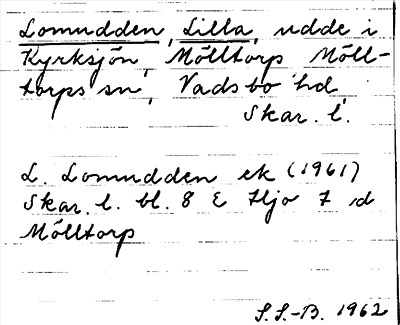 Lomudden, Lilla, udde i
Kyrksjön, Mölltorp Möll-
torps sn, Vadsbo hd,
Skar. l.
L. Lomudden ek (1961)
Skar. l. bl. 8 E Hjo 7 d
Mölltorp
S.S.-B. 1962